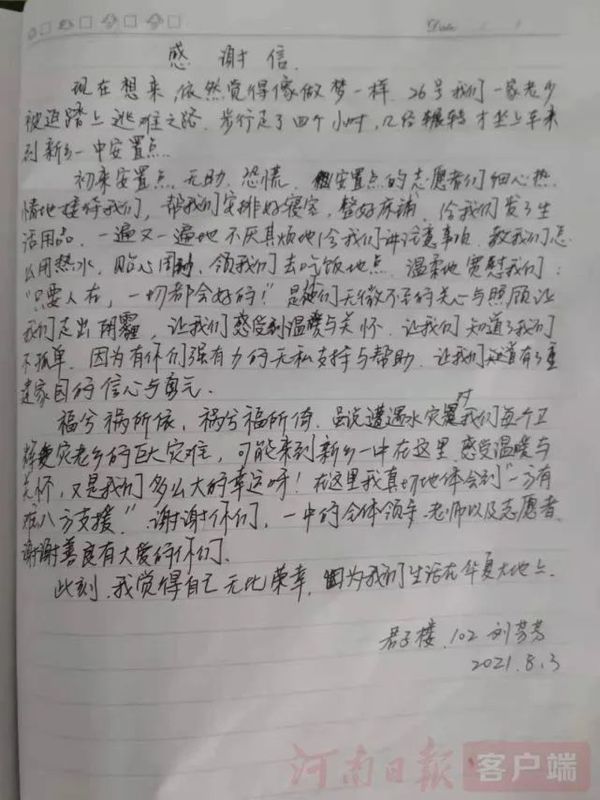 Date
感谢信.
现在想来,依然觉得像做梦一样.26号我们一家老少
被迫踏上逃难之路.步行走了四个小时,几经辗转才坐上车来
到新乡一中安置点.
初来安置点,无助、恐慌.安置点的志愿者们细心热
情地接待我们,帮我们安排好寝室,整好床铺,给我们发了生
活用品.一遍又一遍地不厌其烦地给我们讲注意事项,教我们怎
么用热水,贴心周到,领我们去吃饭地点.温柔地宽慰我们:
"只要人在,一切都会好的!"是她们无微不至的关心与照顾让
我们走出阴霾,让我们感受到温暖与关怀.让我们知道了我们
不孤单.因为有你们强有力的无私支持与帮助.让我们知道有了重
建家园的信心与勇气.
福兮祸所依,祸兮福所倚.虽说遭遇水灾是对我们每个卫
辉受灾老乡的巨大灾难,可能来到新乡一中在这里感受温暖与
关怀,又是我们多么大的幸运呀!在这里我真切地体会到"一方有
难八方支援."谢谢你们,一中的全体领导、老师以及志愿者.
谢谢善良有大爱的你们.
此刻.我觉得自己无比荣幸.因为我们生活在华夏大地上.
君子楼.102 刘芳芳
2021.8.3
河南日报 客户端